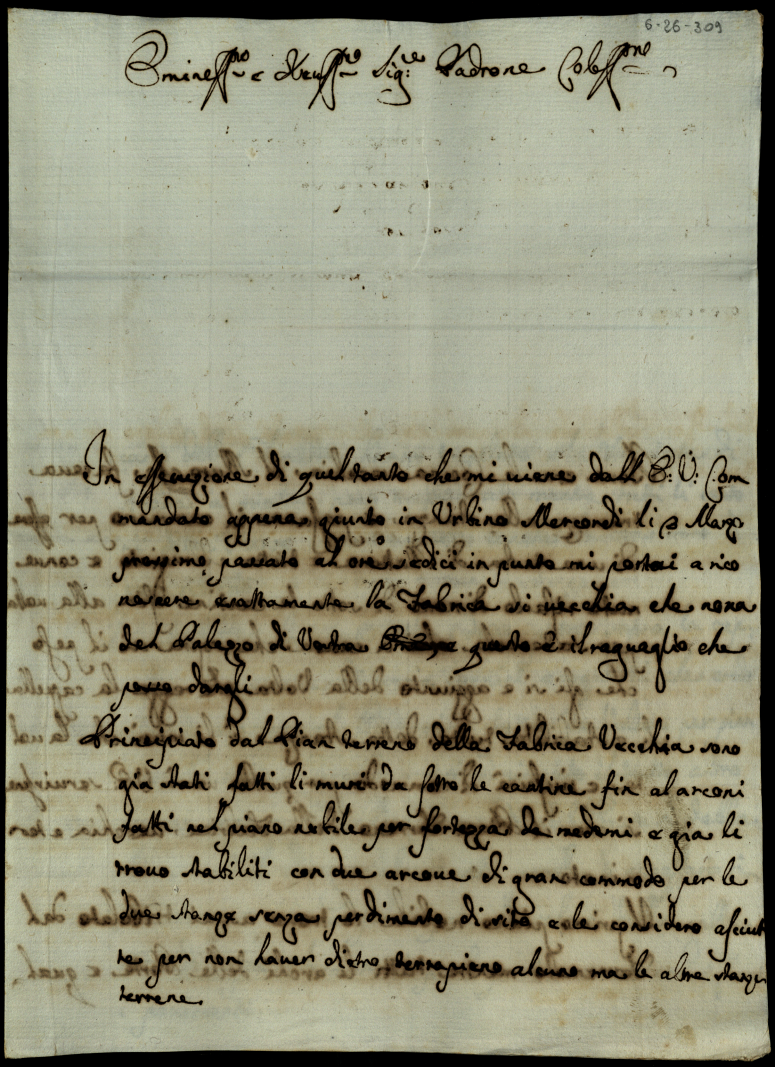 6-26-309
Eminess.mo e Reuss.mo Sig.re Padrone Coless.mo
In essecuzione di quel tanto che mi uiene dall E: V: Com
mandato appena giunto in Vrbino Mercordi li 2 Marzo
prossimo passato al ore sedici in punto mi portai a rico
noscere esattamente la Fabrica si uecchia che noua
del Palazzo di Vostra questo è il raguaglio che
posso dargli
Principiato dal Pian terreno della Fabrica Vecchia sono
gia stati fatti li muri da sotto le cantine fin al arconi
fatti nel piano nobile per fortezza de medemi e gia li
trouo stabiliti con due arcoue di gran commodo per le
due stanze senza perdimento di sito e le considero asciut
te per non hauer dietro terrapieno alcuno ma le altre stanze
terrene